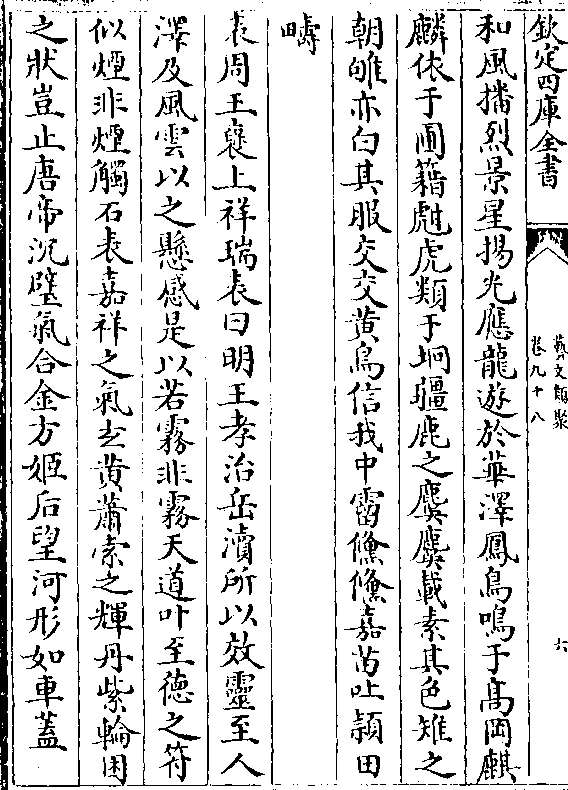 欽定四庫全書
藝文類聚
卷九十八
六
和風播烈景星揚光應龍遊於華澤鳳鳥鳴于高岡麒
麟依于圃籍彪虎類于坰疆鹿之麌麌載素其色雉之
朝雊亦白其服交交黄鳥信我中霤儵儵嘉苗吐頴田
疇
表周王襃上祥瑞表曰明王孝治岳瀆所以效靈至人
澤及風雲以之懸感是以若霧非霧天道叶至德之符
似煙非煙觸石表嘉祥之氣玄黄蕭索之輝丹紫輪囷
之狀豈止唐帝沉璧氣合金方姬后望河形如車蓋